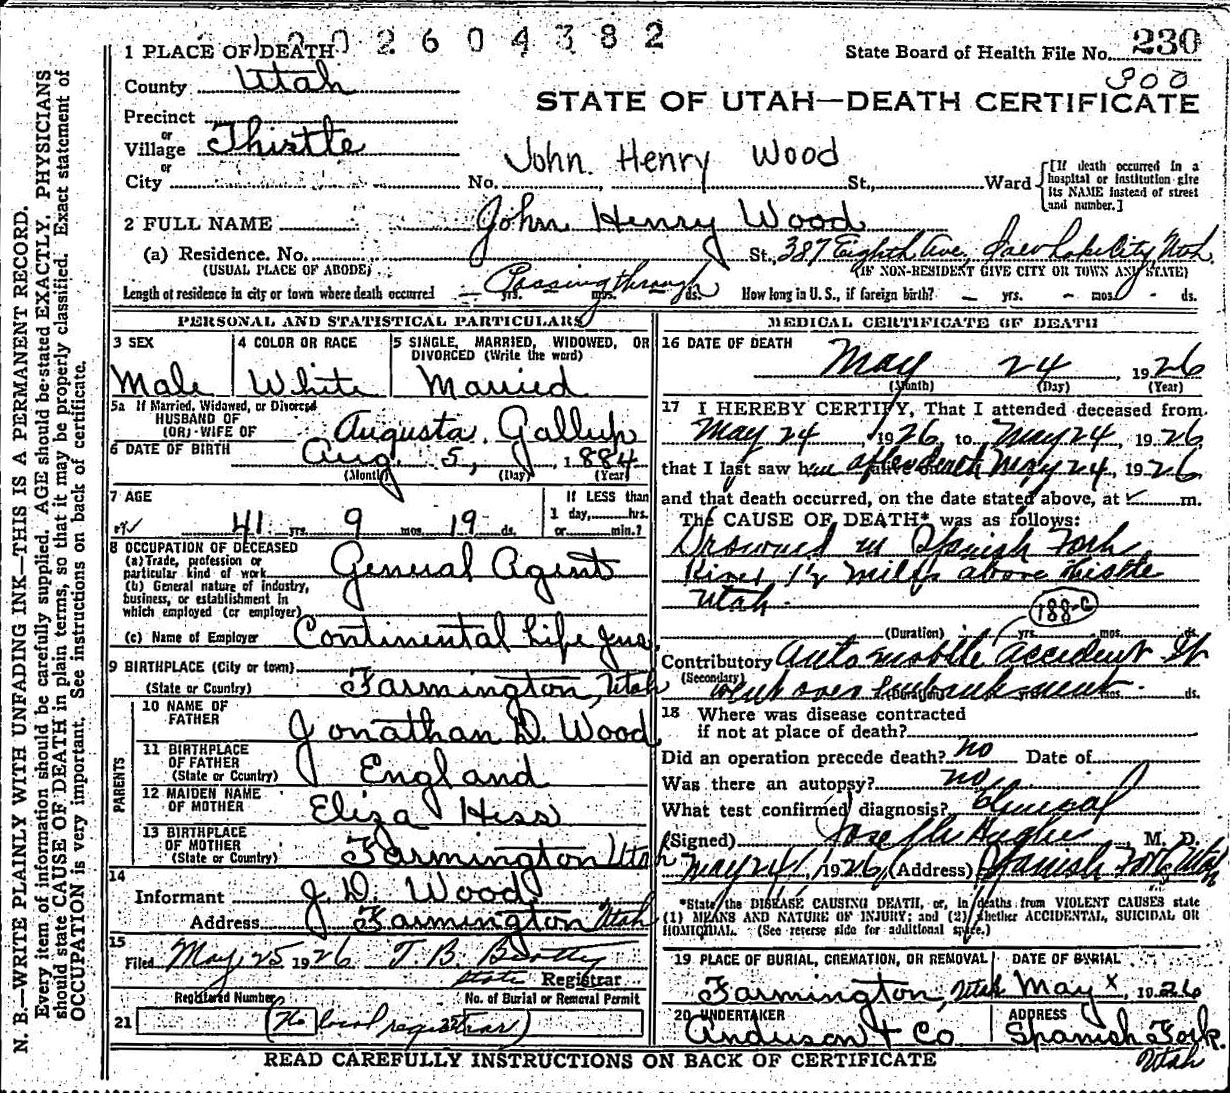 1202604382
1 PLACE OF DEATH
State Board of Health File No. 230
County Utah
300
STATE OF UTAH—DEATH CERTIFICATE
Precinct
or
Village Thistle
or
John Henry Wood
City No. St., Ward
[If death occurred in a hospital or institution give its NAME instead of street and number.]
2 FULL NAME John Henry Wood
(a) Residence. No. St., 387 Eighth Ave, Salt Lake City Utah
(USUAL PLACE OF ABODE) (IF NON-RESIDENT GIVE CITY OR TOWN AND STATE)
Length of residence in city or town where death occurred — yrs. mos. ds. Passing through How long in U.S., if foreign birth? — yrs. - mos. - ds.
PERSONAL AND STATISTICAL PARTICULARS
3 SEX
Male
4 COLOR OR RACE
White
5 SINGLE, MARRIED, WIDOWED, OR DIVORCED (Write the word)
Married
5a If Married, Widowed, or Divorced
HUSBAND OF
(OR) WIFE OF Augusta Gallup
6 DATE OF BIRTH Aug. 5, 1884
(Month) (Day) (Year)
7 AGE
41 yrs. 9 mos. 19 ds.
If LESS than
1 day, hrs.
or min.?
8 OCCUPATION OF DECEASED
(a) Trade, profession or
particular kind of work General Agent
(b) General nature of industry,
business, or establishment in
which employed (or employer)
(c) Name of Employer Continental Life Ins.
9 BIRTHPLACE (City or town)
(State or Country) Farmington, Utah
PARENTS
10 NAME OF
FATHER Jonathan D. Wood
11 BIRTHPLACE
OF FATHER
(State or Country) England
12 MAIDEN NAME
OF MOTHER Eliza Hess
13 BIRTHPLACE
OF MOTHER
(State or Country) Farmington Utah
14
Informant J. D. Wood
Address Farmington Utah
15
Filed May 25 1926 T. B. Beatty
State Registrar
Registered Number No. of Burial or Removal Permit
21 (No local registrar)
MEDICAL CERTIFICATE OF DEATH
16 DATE OF DEATH
May 24 1926
(Month) (Day) (Year)
17 I HEREBY CERTIFY, That I attended deceased from
May 24, 1926, to May 24, 1926
that I last saw him after death May 24, 1926
and that death occurred, on the date stated above, at m.
The CAUSE OF DEATH* was as follows:
Drowned in Spanish Fork
River 1½ miles above Thistle
Utah.
188-c
(Duration) yrs. mos. ds.
Contributory Automobile accident It
(Secondary) went over embankment.
(Duration) yrs. mos. ds.
18 Where was disease contracted
if not at place of death?
Did an operation precede death? no Date of
Was there an autopsy? no
What test confirmed diagnosis? General
(Signed) Jos. Hughes M. D.
May 24, 1926 (Address) Spanish Fork, Utah
*State the DISEASE CAUSING DEATH, or, in deaths from VIOLENT CAUSES state
(1) MEANS AND NATURE OF INJURY; and (2) whether ACCIDENTAL, SUICIDAL OR
HOMICIDAL. (See reverse side for additional space.)
19 PLACE OF BURIAL, CREMATION, OR REMOVAL
Farmington, Utah
DATE OF BURIAL
May x, 1926
20 UNDERTAKER
Anderson & Co
ADDRESS
Spanish Fork.
Utah
READ CAREFULLY INSTRUCTIONS ON BACK OF CERTIFICATE
N. B.—WRITE PLAINLY WITH UNFADING INK—THIS IS A PERMANENT RECORD.
Every item of information should be carefully supplied. AGE should be stated EXACTLY. PHYSICIANS
should state CAUSE OF DEATH in plain terms, so that it may be properly classified. Exact statement of
OCCUPATION is very important. See instructions on back of certificate.